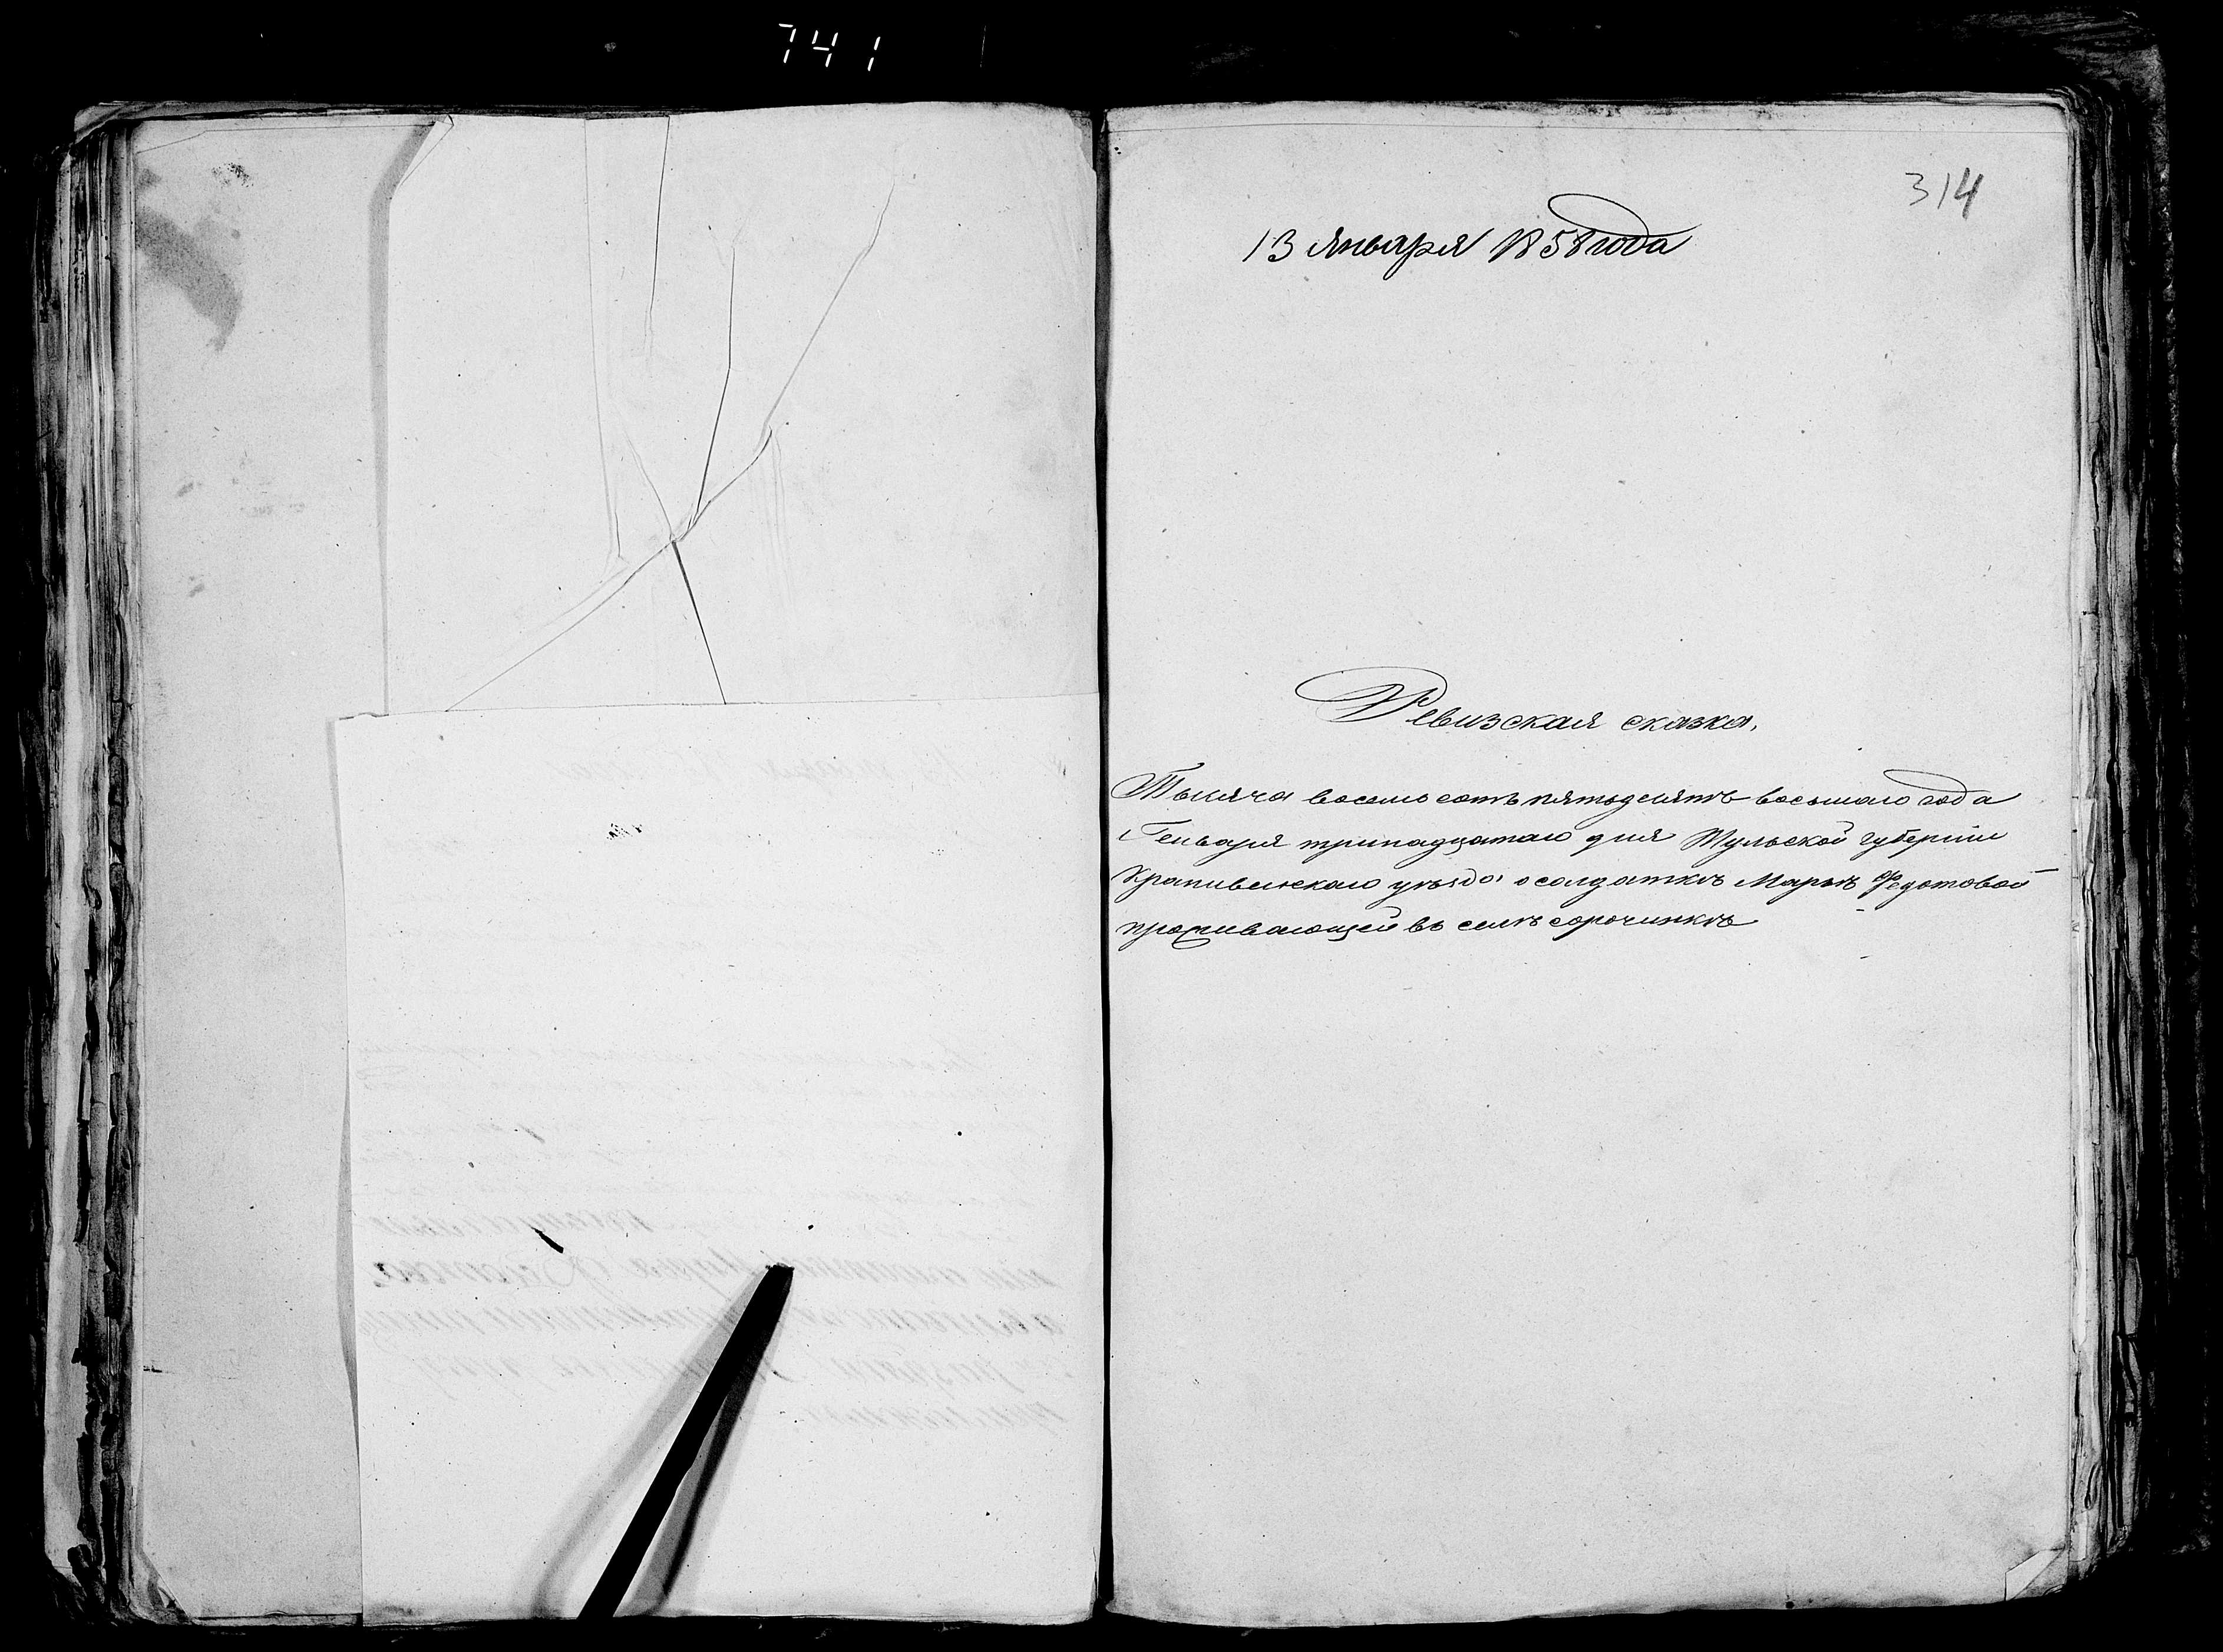 741
314
13 Января 1858 года
Ревизская сказка.
Тысяча восемь сотъ пятьдесятъ восьмаго года
Генваря тринадцатаго дня Тульской губерніи
Крапивенскаго уѣзда о солдаткѣ Марьѣ Федотовой
проживающей въ селѣ сорочинкѣ